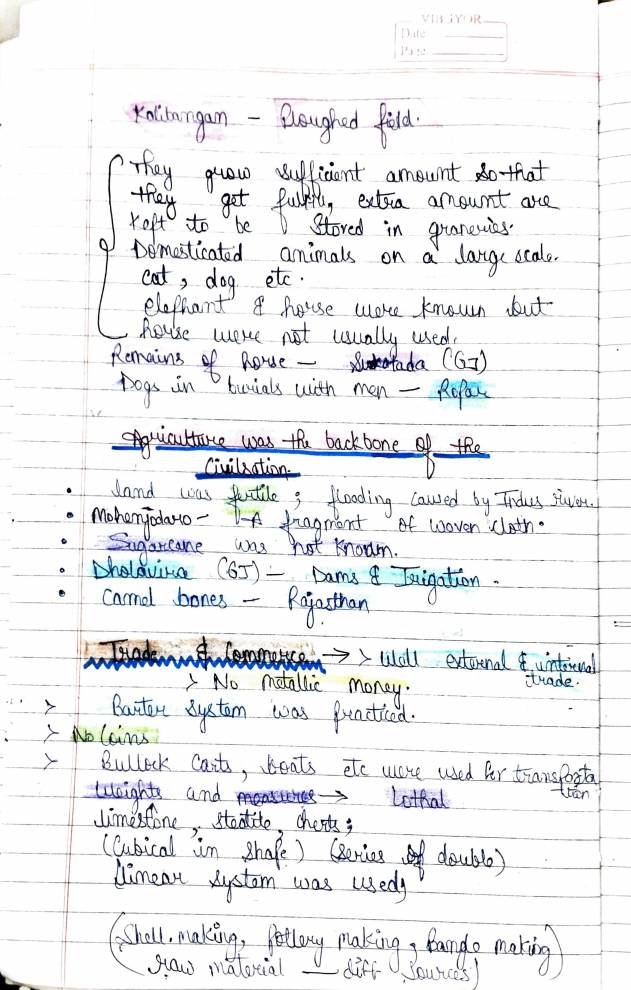 VIBGYOR
Date
Page
Kalibangan - Ploughed field.
They grow sufficient amount so that
they get fulfil, extra amount are
kept to be stored in graneries.
Domesticated animals on a large scale.
cat, dog etc.
elephant & horse were known but
horse were not usually used.
Remains of horse - Surkotada (GJ)
Dogs in burials with men - Ropar
Agriculture was the backbone of the
Civilsation.
• land was fertile; flooding caused by Indus river.
• Mohenjodaro - A fragment of woven cloth.
• Sugarcane was not known.
• Dholavira (GJ) - Dams & Irigation.
• Camel bones - Rajasthan
Trade & Commerce → > Well external & internal
trade.
> No metallic money.
> Barter system was practiced.
> No Coins
> Bullock Carts, boats etc were used for transporta
tion
Weights and measures → Lothal
limestone, steatite, cherts;
(Cubical in shape) (series of double)
(linear system was used)
(Shell making, pottery making, Bangle making)
raw material - diff sources)